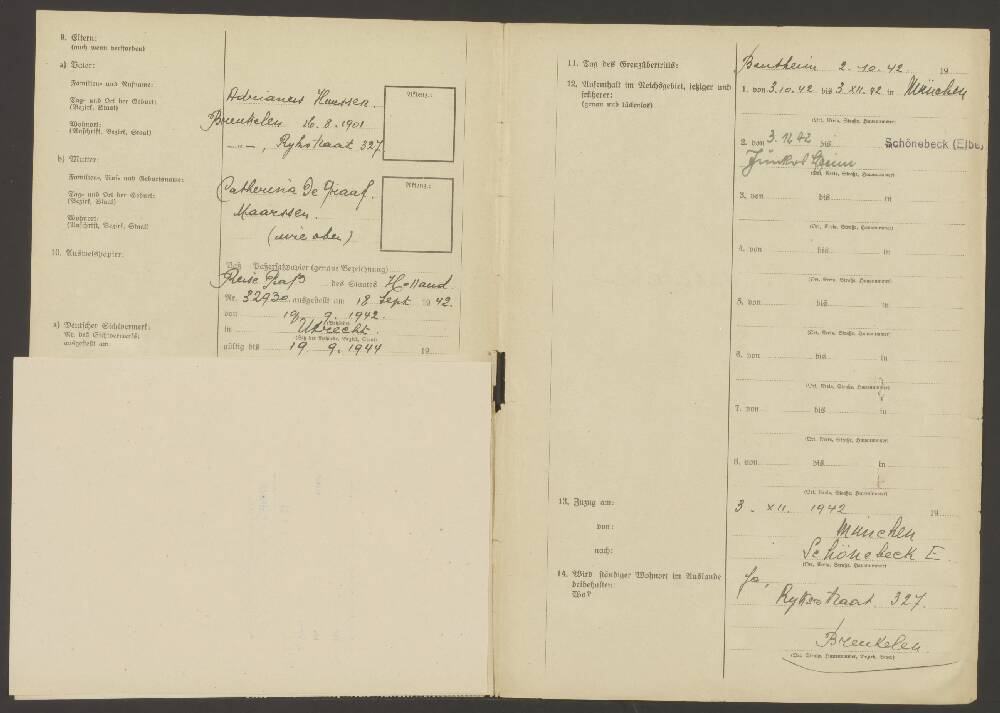 9. Eltern:
(auch wenn verstorben)
a) Vater:
Familien- und Rufname:
Adrianus Haassen.
Tag- und Ort der Geburt:
(Bezirk, Staat)
Breukelen 16.8.1901
Wohnort:
(Anschrift, Bezirk, Staat)
-"-, Rykstraat 327
Ablenz.:
b) Mutter:
Familien-, Ruf- und Geburtsname:
Catherina De Graaf.
Tag- und Ort der Geburt:
(Bezirk, Staat)
Maarssen.
Wohnort:
(Anschrift, Bezirk, Staat)
(wie oben)
Ablenz.:
10. Ausweispapier:
Paß- Paßersatzpapier (genaue Bezeichnung)
Reise Paß des Staates Holland
Nr. 32930 ausgestellt am 18 Sept 1942.
von 19. 9. 1942.
(Behörde)
in Utrecht.
(Sitz der Behörde, Bezirk, Staat)
gültig bis 19. 9. 1944 19
a) Deutscher Sichtvermerk:
Nr. des Sichtvermerks:
ausgestellt am
11. Tag des Grenzübertritts:
Bentheim 2.10.42 19
12. Aufenthalt im Reichsgebiet, jetziger und
früherer:
(genau und lückenlos)
1. von 3.10.42 bis 3.XII.42 in München
(Ort, Kreis, Straße, Hausnummer)
2. von 3.12.42 bis Schönebeck (Elbe)
(Ort, Kreis, Straße, Hausnummer)
3. von bis in
(Ort, Kreis, Straße, Hausnummer)
4. von bis in
(Ort, Kreis, Straße, Hausnummer)
5. von bis in
(Ort, Kreis, Straße, Hausnummer)
6. von bis in
(Ort, Kreis, Straße, Hausnummer)
7. von bis in
(Ort, Kreis, Straße, Hausnummer)
8. von bis in
(Ort, Kreis, Straße, Hausnummer)
13. Zuzug am:
3. XII. 1942 19
von:
München
nach:
Schönebeck E
(Ort, Kreis, Straße, Hausnummer)
14. Wird ständiger Wohnort im Auslande
beibehalten:
Wo?
Ja,
Rykstraat 327.
Breukelen
(Ort, Straße, Hausnummer, Bezirk, Staat)